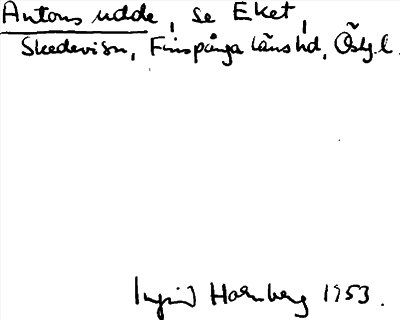 Antons udde, se Eket,
Skedevi sn, Finspånga läns hd, Östg. l.
Ingrid Holmberg 1953.